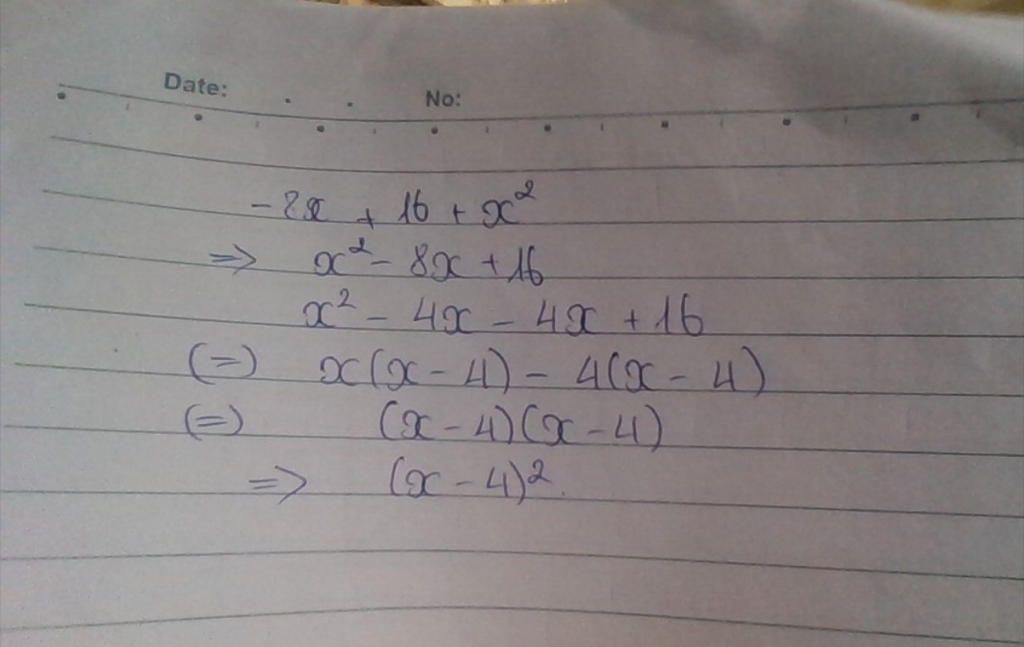 Date: No:
-8x + 16 + x²
=> x² - 8x + 16
x² - 4x - 4x + 16
(=) x(x - 4) - 4(x - 4)
(=) (x - 4)(x - 4)
=> (x - 4)².